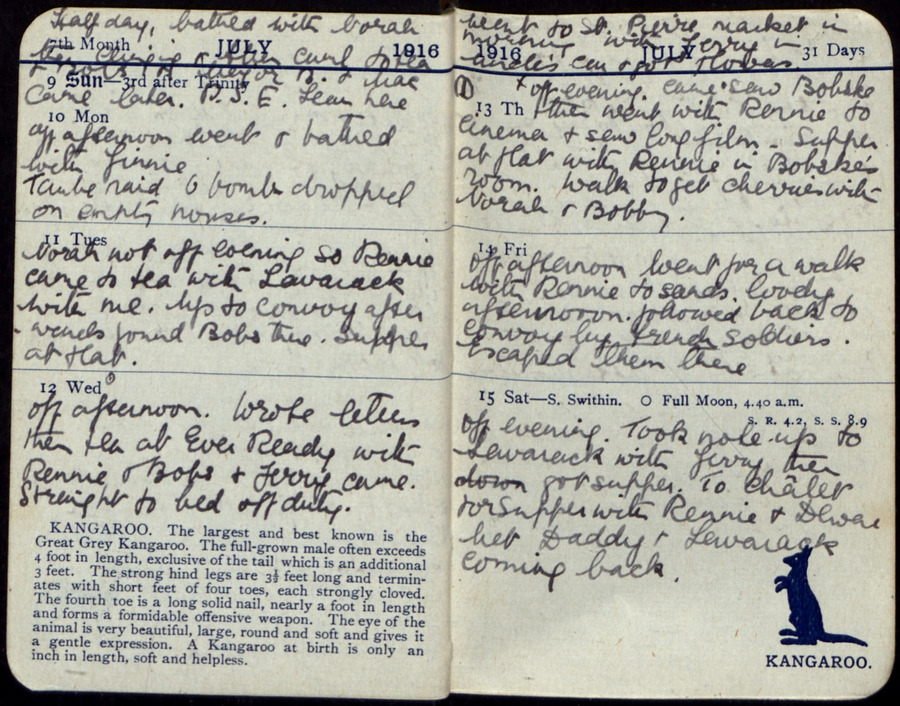 Half day, bathed with Norah
7th Month JULY 1916
then tea
9 Sun—3rd after Trinity
came later. P.S.E. Lean here
10 Mon
off afternoon went & bathed
with Jinnie
Taube raid 6 bombs dropped
on empty houses.
11 Tues
Norah not off evening so Rennie
came to tea with Lavarack
with me. Up to convoy after
wards found Bobs there. Supper
at flat.
12 Wed
off afternoon. Wrote letters
then tea at Ever Ready with
Rennie & Bobs & Jerry came.
Straight to bed off duty.
KANGAROO. The largest and best known is the
Great Grey Kangaroo. The full-grown male often exceeds
4 foot in length, exclusive of the tail which is an additional
3 feet. The strong hind legs are 3½ feet long and termin-
ates with short feet of four toes, each strongly cloved.
The fourth toe is a long solid nail, nearly a foot in length
and forms a formidable offensive weapon. The eye of the
animal is very beautiful, large, round and soft and gives it
a gentle expression. A Kangaroo at birth is only an
inch in length, soft and helpless.
went to St. Pierre market in
morning with Jerry in
1916 JULY 31 Days
car & got flowers
off evening. came & saw Bobske
13 Th then went with Rennie to
cinema & saw film - Supper
at flat with Rennie in Bobske's
room. Walk to get cherries with
Norah & Bobby.
14 Fri
off afternoon went for a walk
with Rennie to sands. lovely
afternoon. followed back to
convoy by French soldiers.
Escaped them there
15 Sat—S. Swithin. O Full Moon, 4.40 a.m.
S. R. 4.2, S. S. 8.9
off evening. Took note up to
Lewarack with Jerry then
down got supper. To Châlet
for supper with Rennie &
Met Daddy & Lewarack
coming back.
KANGAROO.